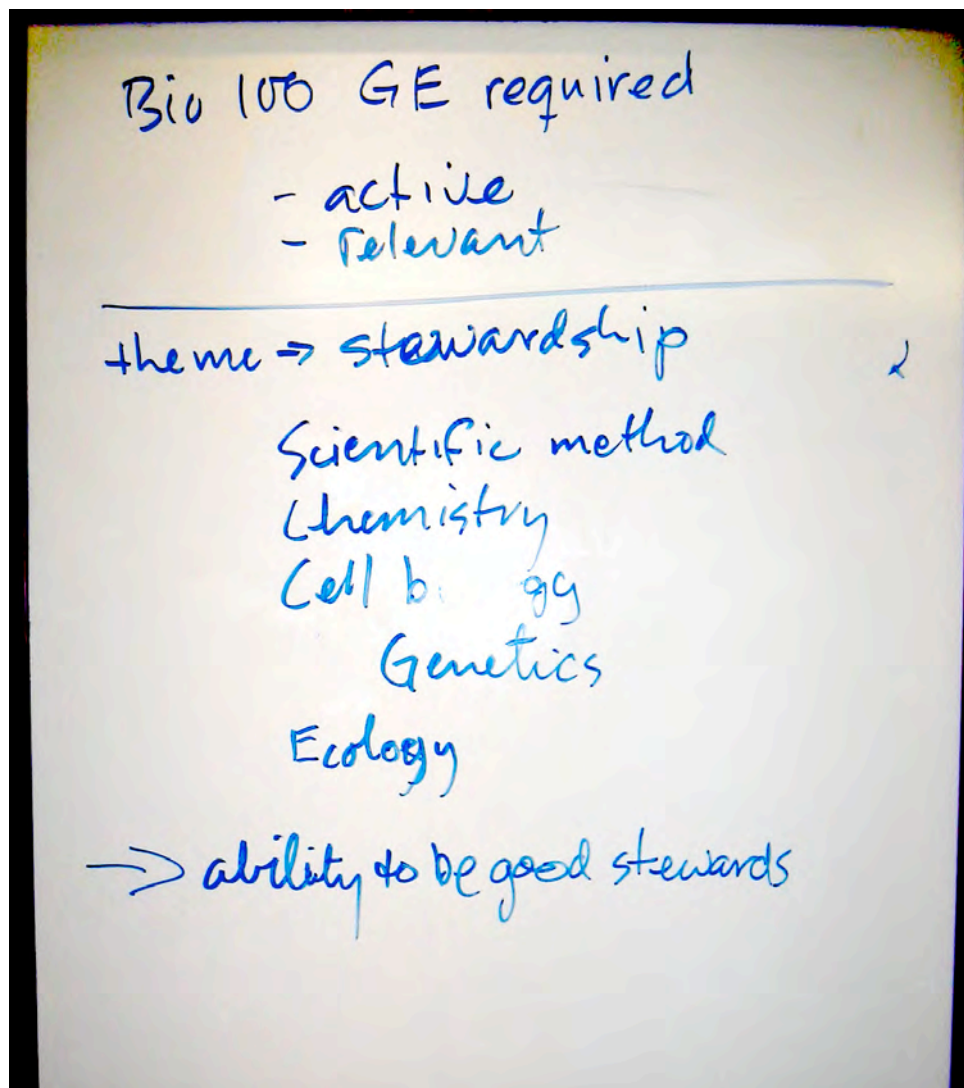 Bio 100 GE required
- active
- relevant
theme => stewardship
Scientific method
Chemistry
Cell b. gy
Genetics
Ecology
-> ability to be good stewards